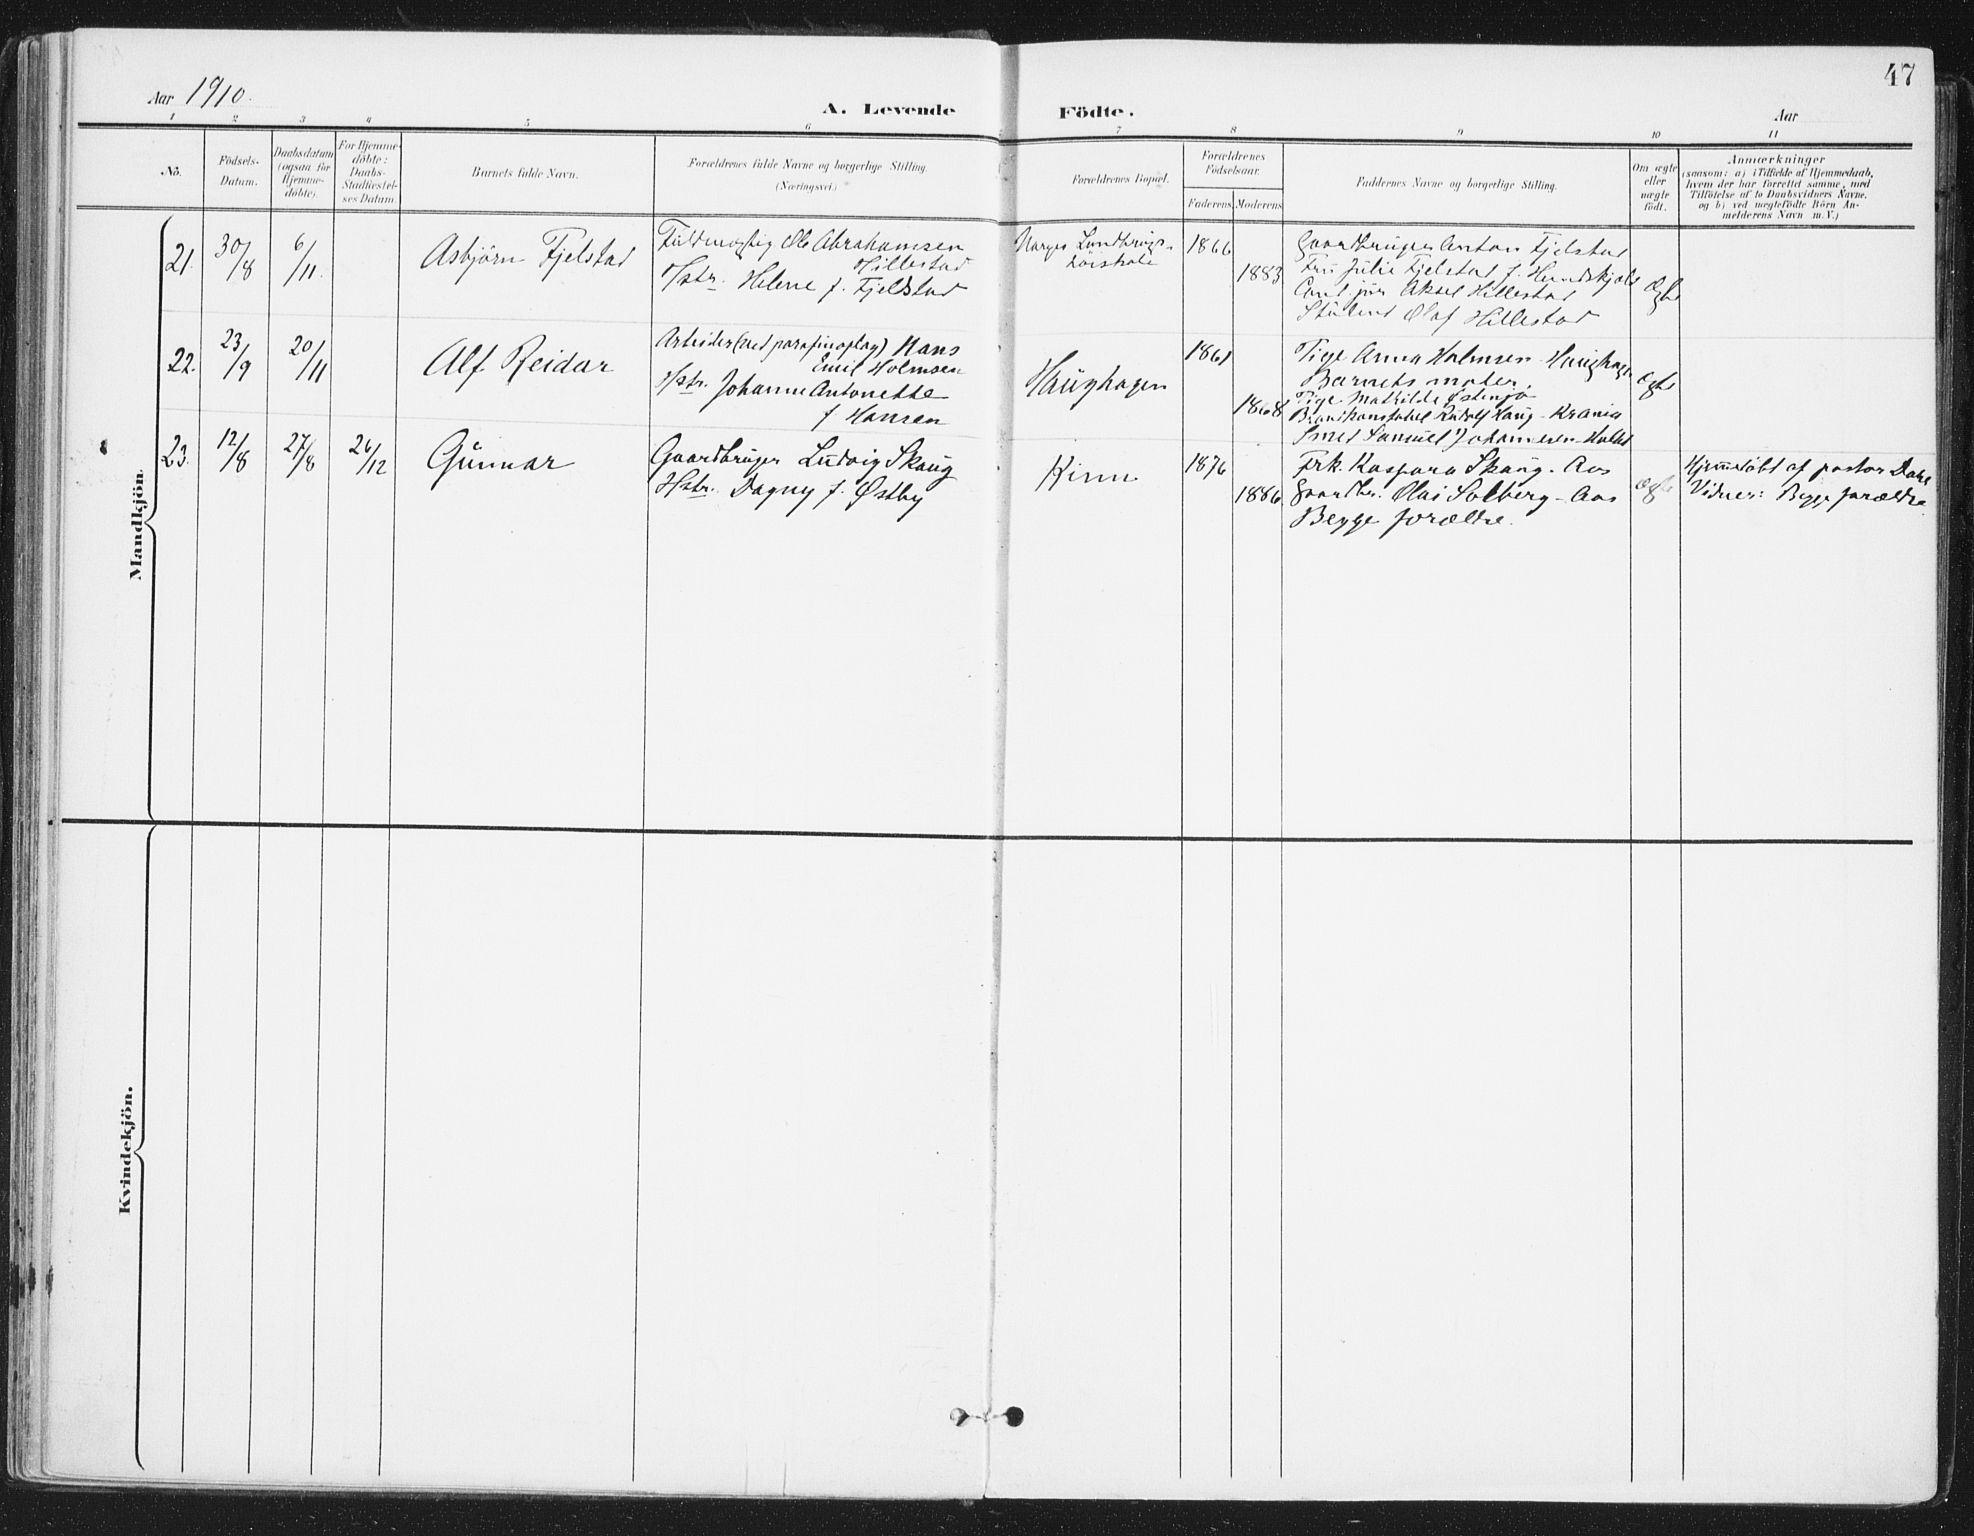 47
Aar 1910.
A. Levende Födte.
Aar
1 2 3 4 5 6 7 8 9 10 11
No.
Födsels-
Datum.
Daabsdatum
(ogsaa for
Hjemme-
döbte).
For Hjemme-
döbte:
Daabs-
Stadfæstel-
ses Datum.
Barnets fulde Navn.
Forældrenes fulde Navne og borgerlige Stilling.
(Næringsvei.)
Forældrenes Bopæl.
Forældrenes
Födselsaar.
Faderens Moderens
Faddernes Navne og borgerlige Stilling.
Om ægte
eller
uægte
født.
Anmærkninger
(saasom: a) i Tilfælde af Hjemmedaab,
hvem der har forrettet samme, med
Tilföielse af to Daabsvidners Navne,
og b) ved uægtefödte Börn An-
melderens Navn m. V.)
Mandkjön.
21. 30/8 6/11. Asbjörn Fjelstad
Fuldmægtig Ole Abrahamsen
Hillestad
Hstr. Helene f. Fjelstad
Norges Landbrugs-
høiskole
1866
1883
Gaardbruger Anton Fjelstad
Fru Julie Fjelstad f.
Cand. jur. Aksel Hillestad
Student Olaf Hillestad
Ægte
22. 23/9 20/11 Alf Reidar
Arbeider (ved parafinoplag) Hans
Emil Holmsen
Hstr. Johanne Antonette
f Hansen
Haughagen
1861
1868
Pige Anna Holmsen - Haughagen
Barnets moder.
Pige Mathilde Østensjø
Brandkonstabel Rudolf Haug - Krania
Smed Samuel Johannesen
Ægte
23. 12/8 27/8 26/12 Gunnar
Gaardbruger Ludvig Skaug
Hstr. Dagny f. Østby
Kinn
1876
1886
Frk. Kaspara Skaug - Aas
Gaardbr. Olai Solberg - Aas
Begge forældre.
Ægte
Hjemmedöbt af pastor Dahl
Vidner: Begge forældre
Kvindekjön.